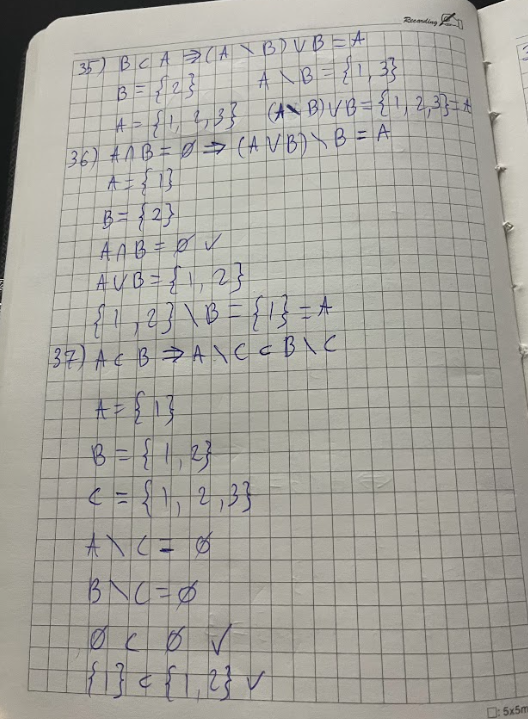 Recording
35) B ⊂ A ⇒ (A \ B) ∪ B = A
B = {2} A \ B = {1, 3}
A = {1, 2, 3} (A \ B) ∪ B = {1, 2, 3} = A
36) A ∩ B = ∅ ⇒ (A ∪ B) \ B = A
A = {1}
B = {2}
A ∩ B = ∅ ✓
A ∪ B = {1, 2}
{1, 2} \ B = {1} = A
37) A ⊂ B ⇒ A \ C ⊂ B \ C
A = {1}
B = {1, 2}
C = {1, 2, 3}
A \ C = ∅
B \ C = ∅
∅ ⊂ ∅ ✓
{1} ⊂ {1, 2} ✓
□: 5x5m